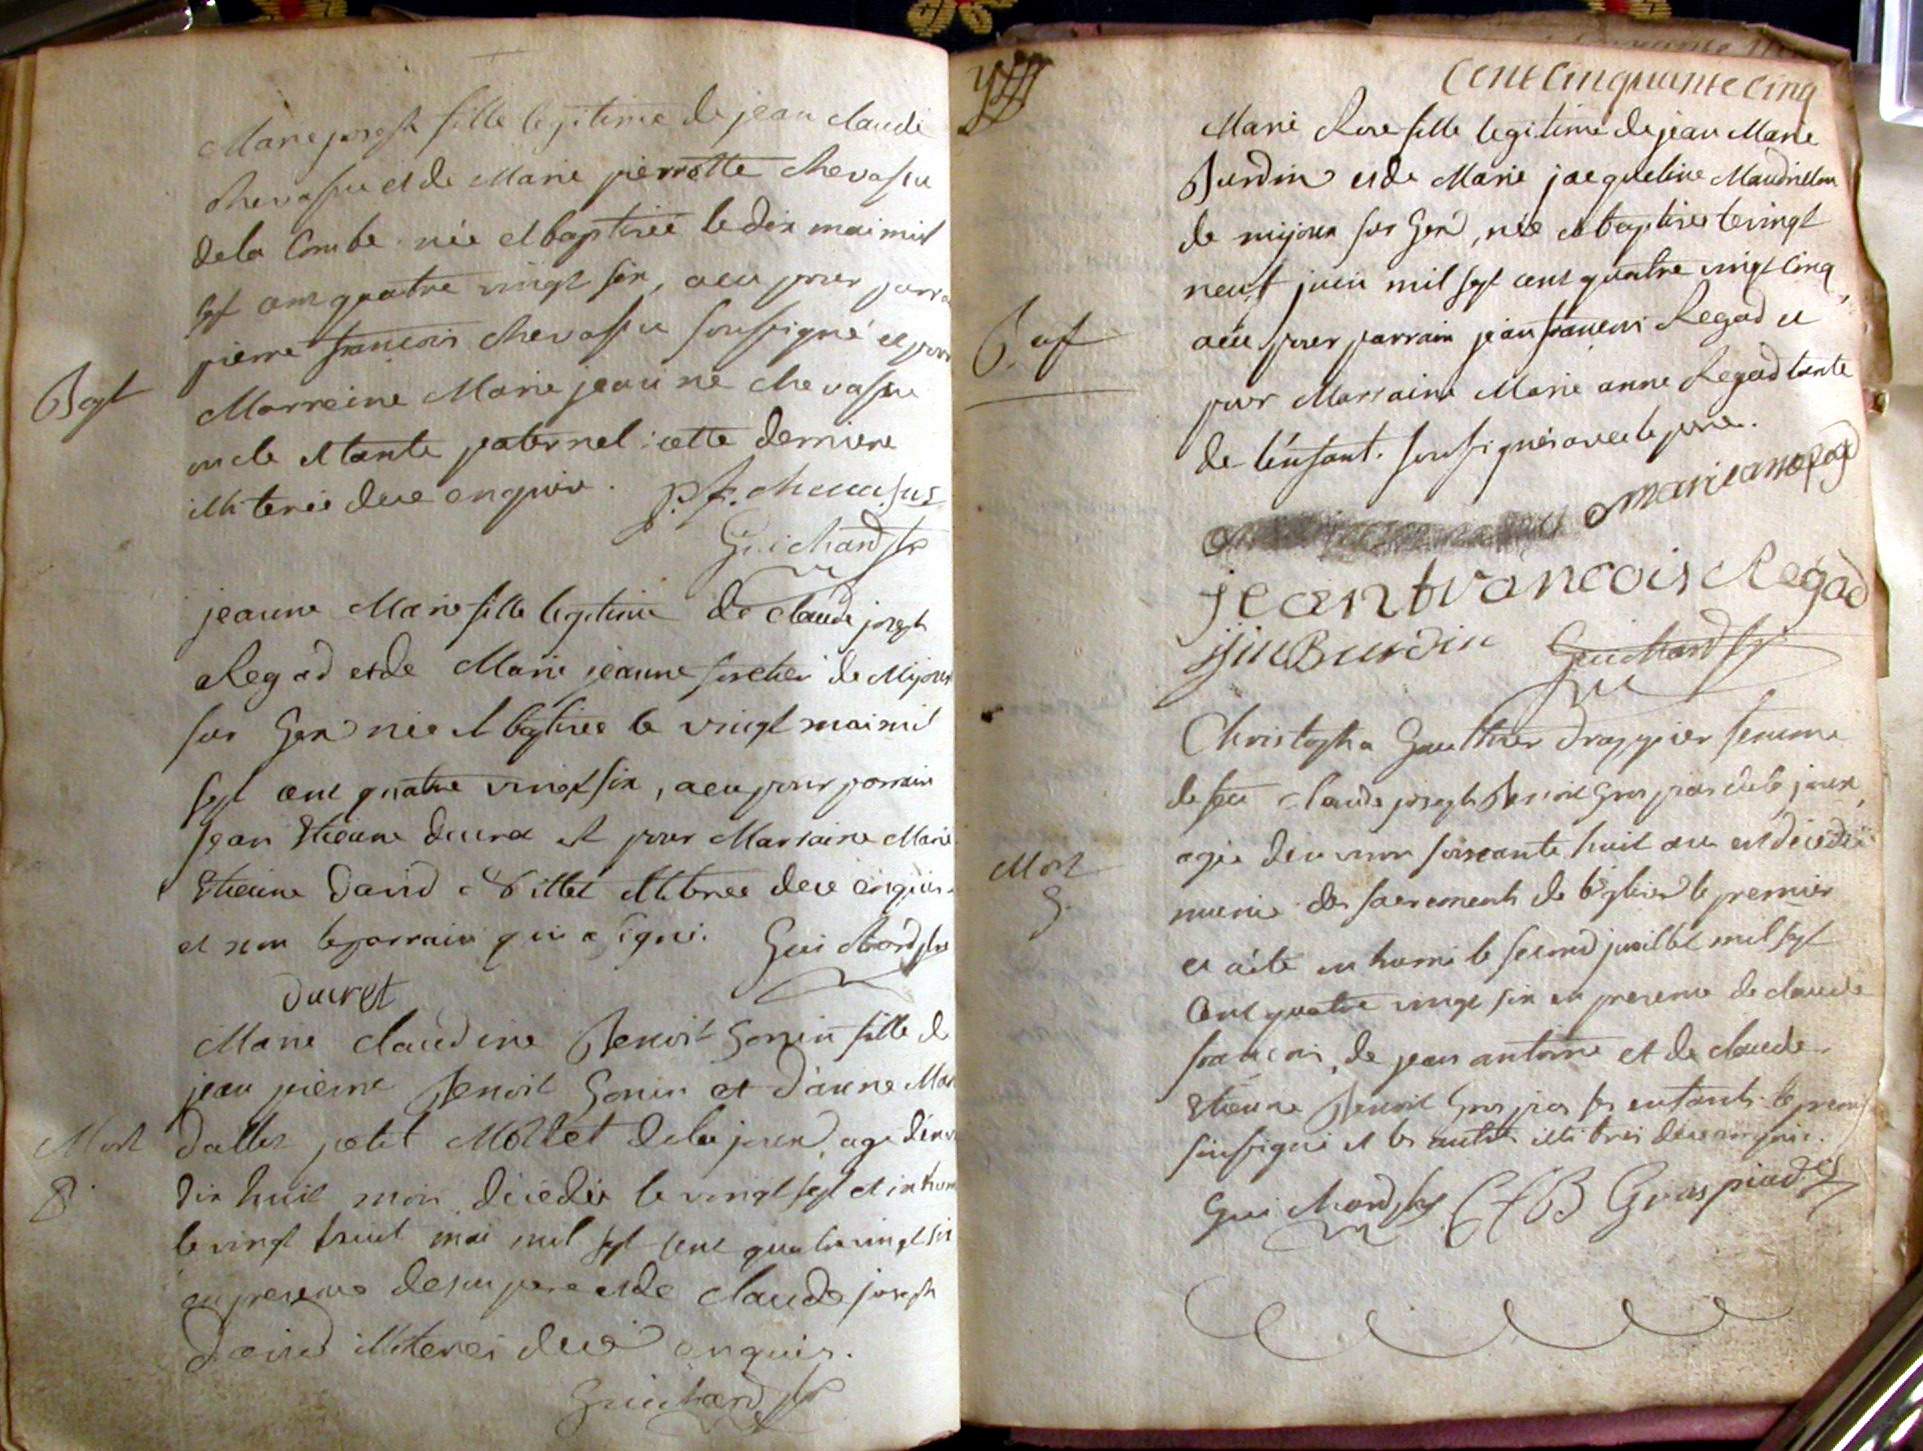 Marie joseph fille legitime de jean claude
Chevassu et de Marie pierrotte Chevassu
de la Combe née et baptisée le dix mai mil
sept cent quatre vingt six, a eu pour parra
pierre francois Chevassu soussigné et pour
Bapt
Marreine Marie jeanne Chevassu
oncle et tante paternel cette derniere
illiterée due enquise. p. f. chevassus
Guichard ptre
jeanne Marie fille legitime de claude joseph
Regad et de Marie jeanne forestier de Mijoux
sur Gex née et baptisée le vingt mai mil
sept cent quatre vingt six, a eu pour parrain
Jean Etienne ducret et pour Marraine Marie
Etienne David Nillet illitrée due enquise
et non le parrain qui a signé. Guichard ptre
ducret
Marie claudine Benoit Gonin fille de
jean pierre Benoit Gonin et d'anne Mar
Mort
dallez petit Mottet de la joux, agé d'env
8.
dix huit mois décédée le vingt sept et inhum
le vingt huit mai mil sept cent quatre vingt six
en presence de son pere et de claude joseph
David illiterés due enquis.
Guichard ptre
Cent Cinquante cinq
Marie Rose fille legitime de jean Marie
Burdin et de Marie jacqueline Maudrillon
de mijoux sur Gex, née et baptisée le vingt
neuf juin mil sept cent quatre vingt cinq,
Bapt
a eu pour parrain jean francois Regad et
pour Marraine Marie anne Regad tante
de l'enfant. soussignés avec le pere.
marie anne Regad
jean francois Regad
jm Burdin Guichard ptre
Christopha Gauthier drappier femme
de feu claude joseph Benoit Gros piad de la joux,
Mort
agée d'environ soixante huit ans est décédée
9.
munie des sacrements de l'eglise le premier
et a été inhumée le second juillet mil sept
cent quatre vingt six en presence de claude
francois, de jean antoine et de claude
Etienne Benoit Gros piad ses enfants le premier
soussigné et les autres illitrés due enquis.
Guichard ptre C f B Gros piad